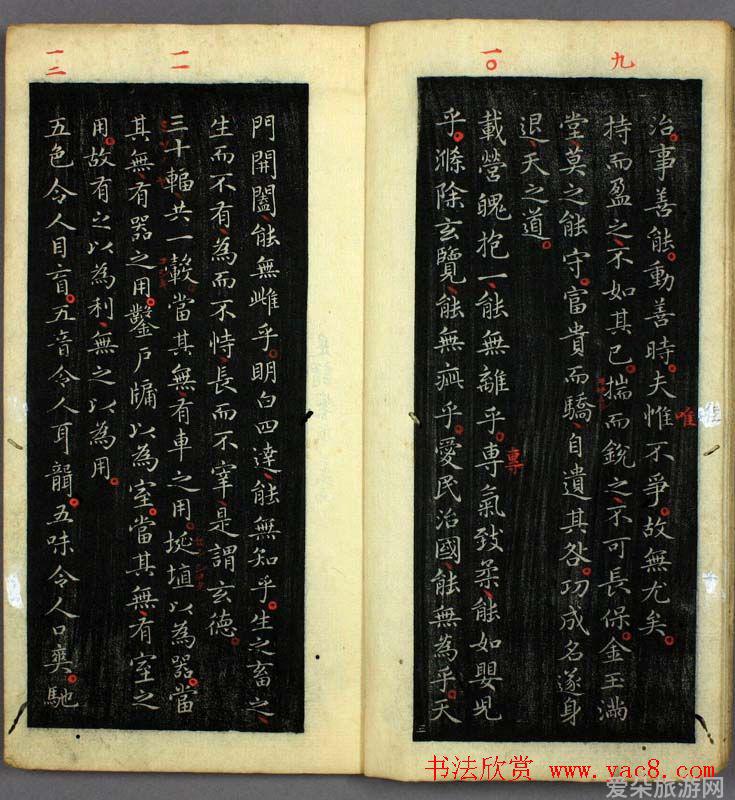 九
一〇
治事善能動善時夫惟不爭故無尤矣
唯
持而盈之不如其已揣而銳之不可長保金玉滿
堂莫之能守富貴而驕自遺其咎功成名遂身
退天之道
載營魄抱一能無離乎專氣致柔能如嬰兒
專
乎滌除玄覽能無疵乎愛民治國能無為乎天
一一
一二
門開闔能無雌乎明白四達能無知乎生之畜之
生而不有為而不恃長而不宰是謂玄德
三十輻共一轂當其無有車之用埏埴以為器當
其無有器之用鑿戶牖以為室當其無有室之
用故有之以為利無之以為用
五色令人目盲五音令人耳聾五味令人口爽馳
书法欣赏 www.yac8.com
爱朵旅游网